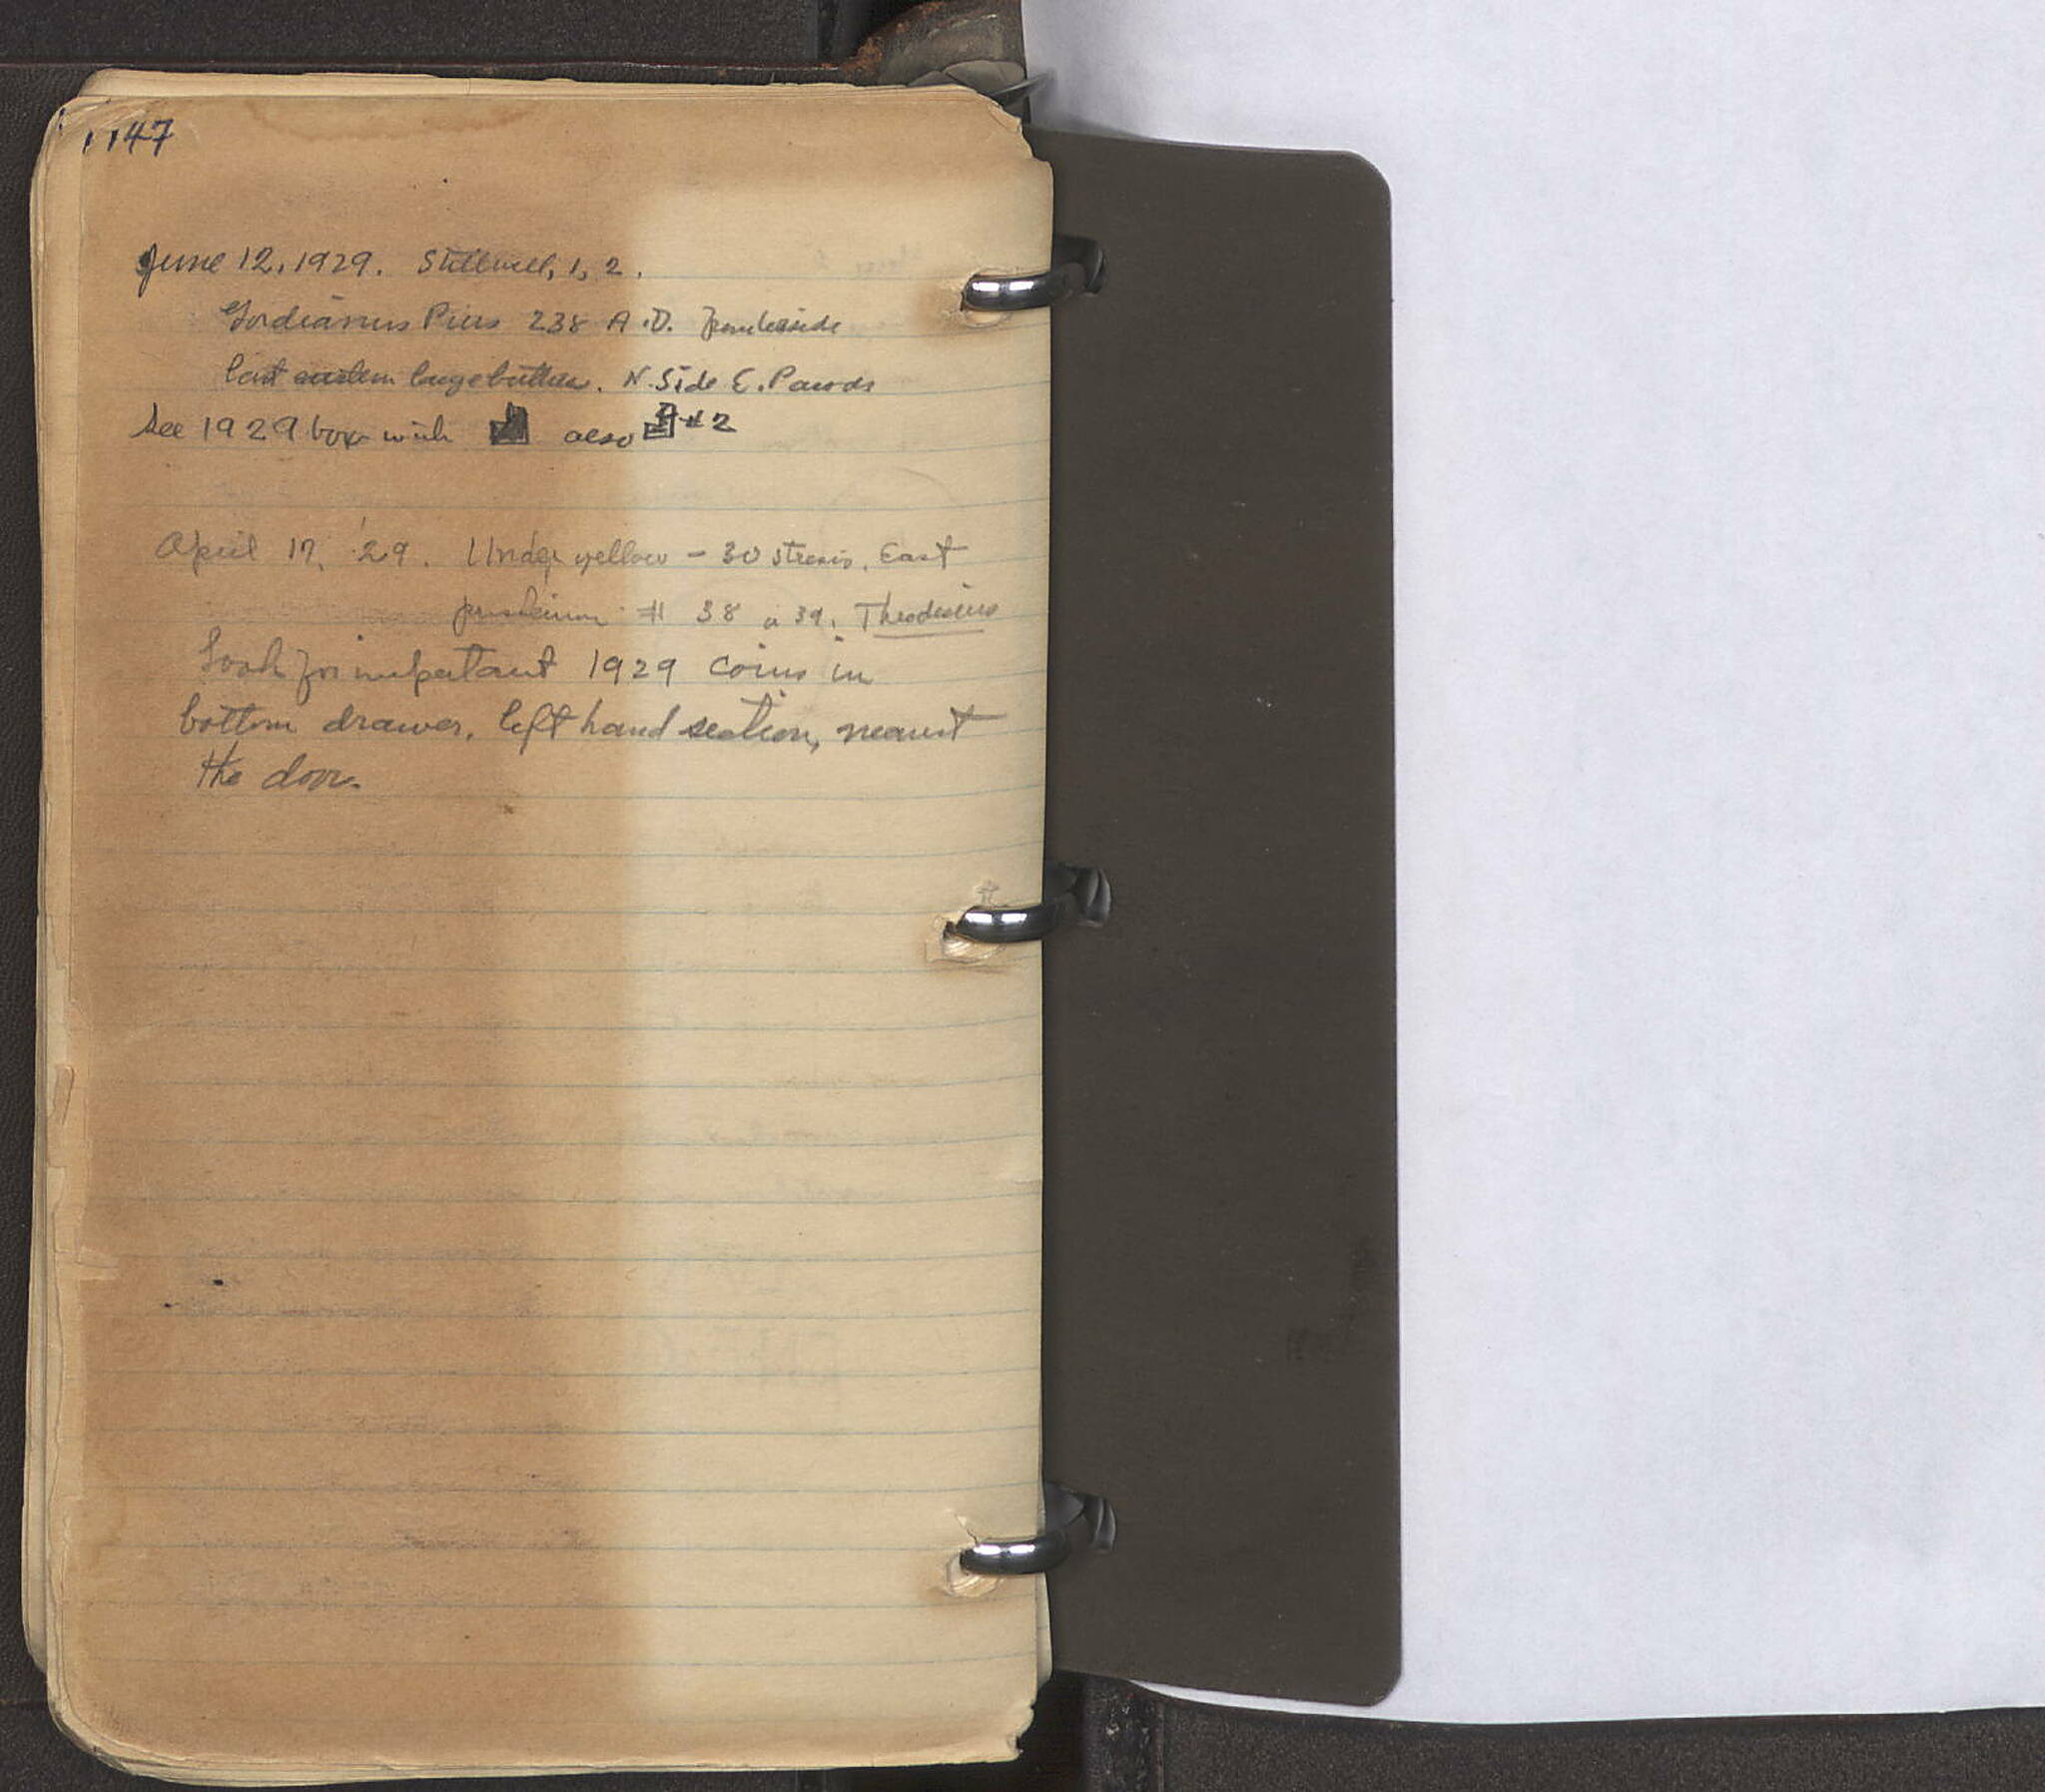 147
June 12, 1929. Stillwell, 1, 2.
Gordianus Pius 238 A.D. from beside
last eastern large buttress. N. Side E. Parods
See 1929 box with also A #2
April 17, '29. Under yellow - 30 strosis, East
# 38 a 39. Theodosius
Look for important 1929 coins in
bottom drawer, left hand section, nearest
the door.